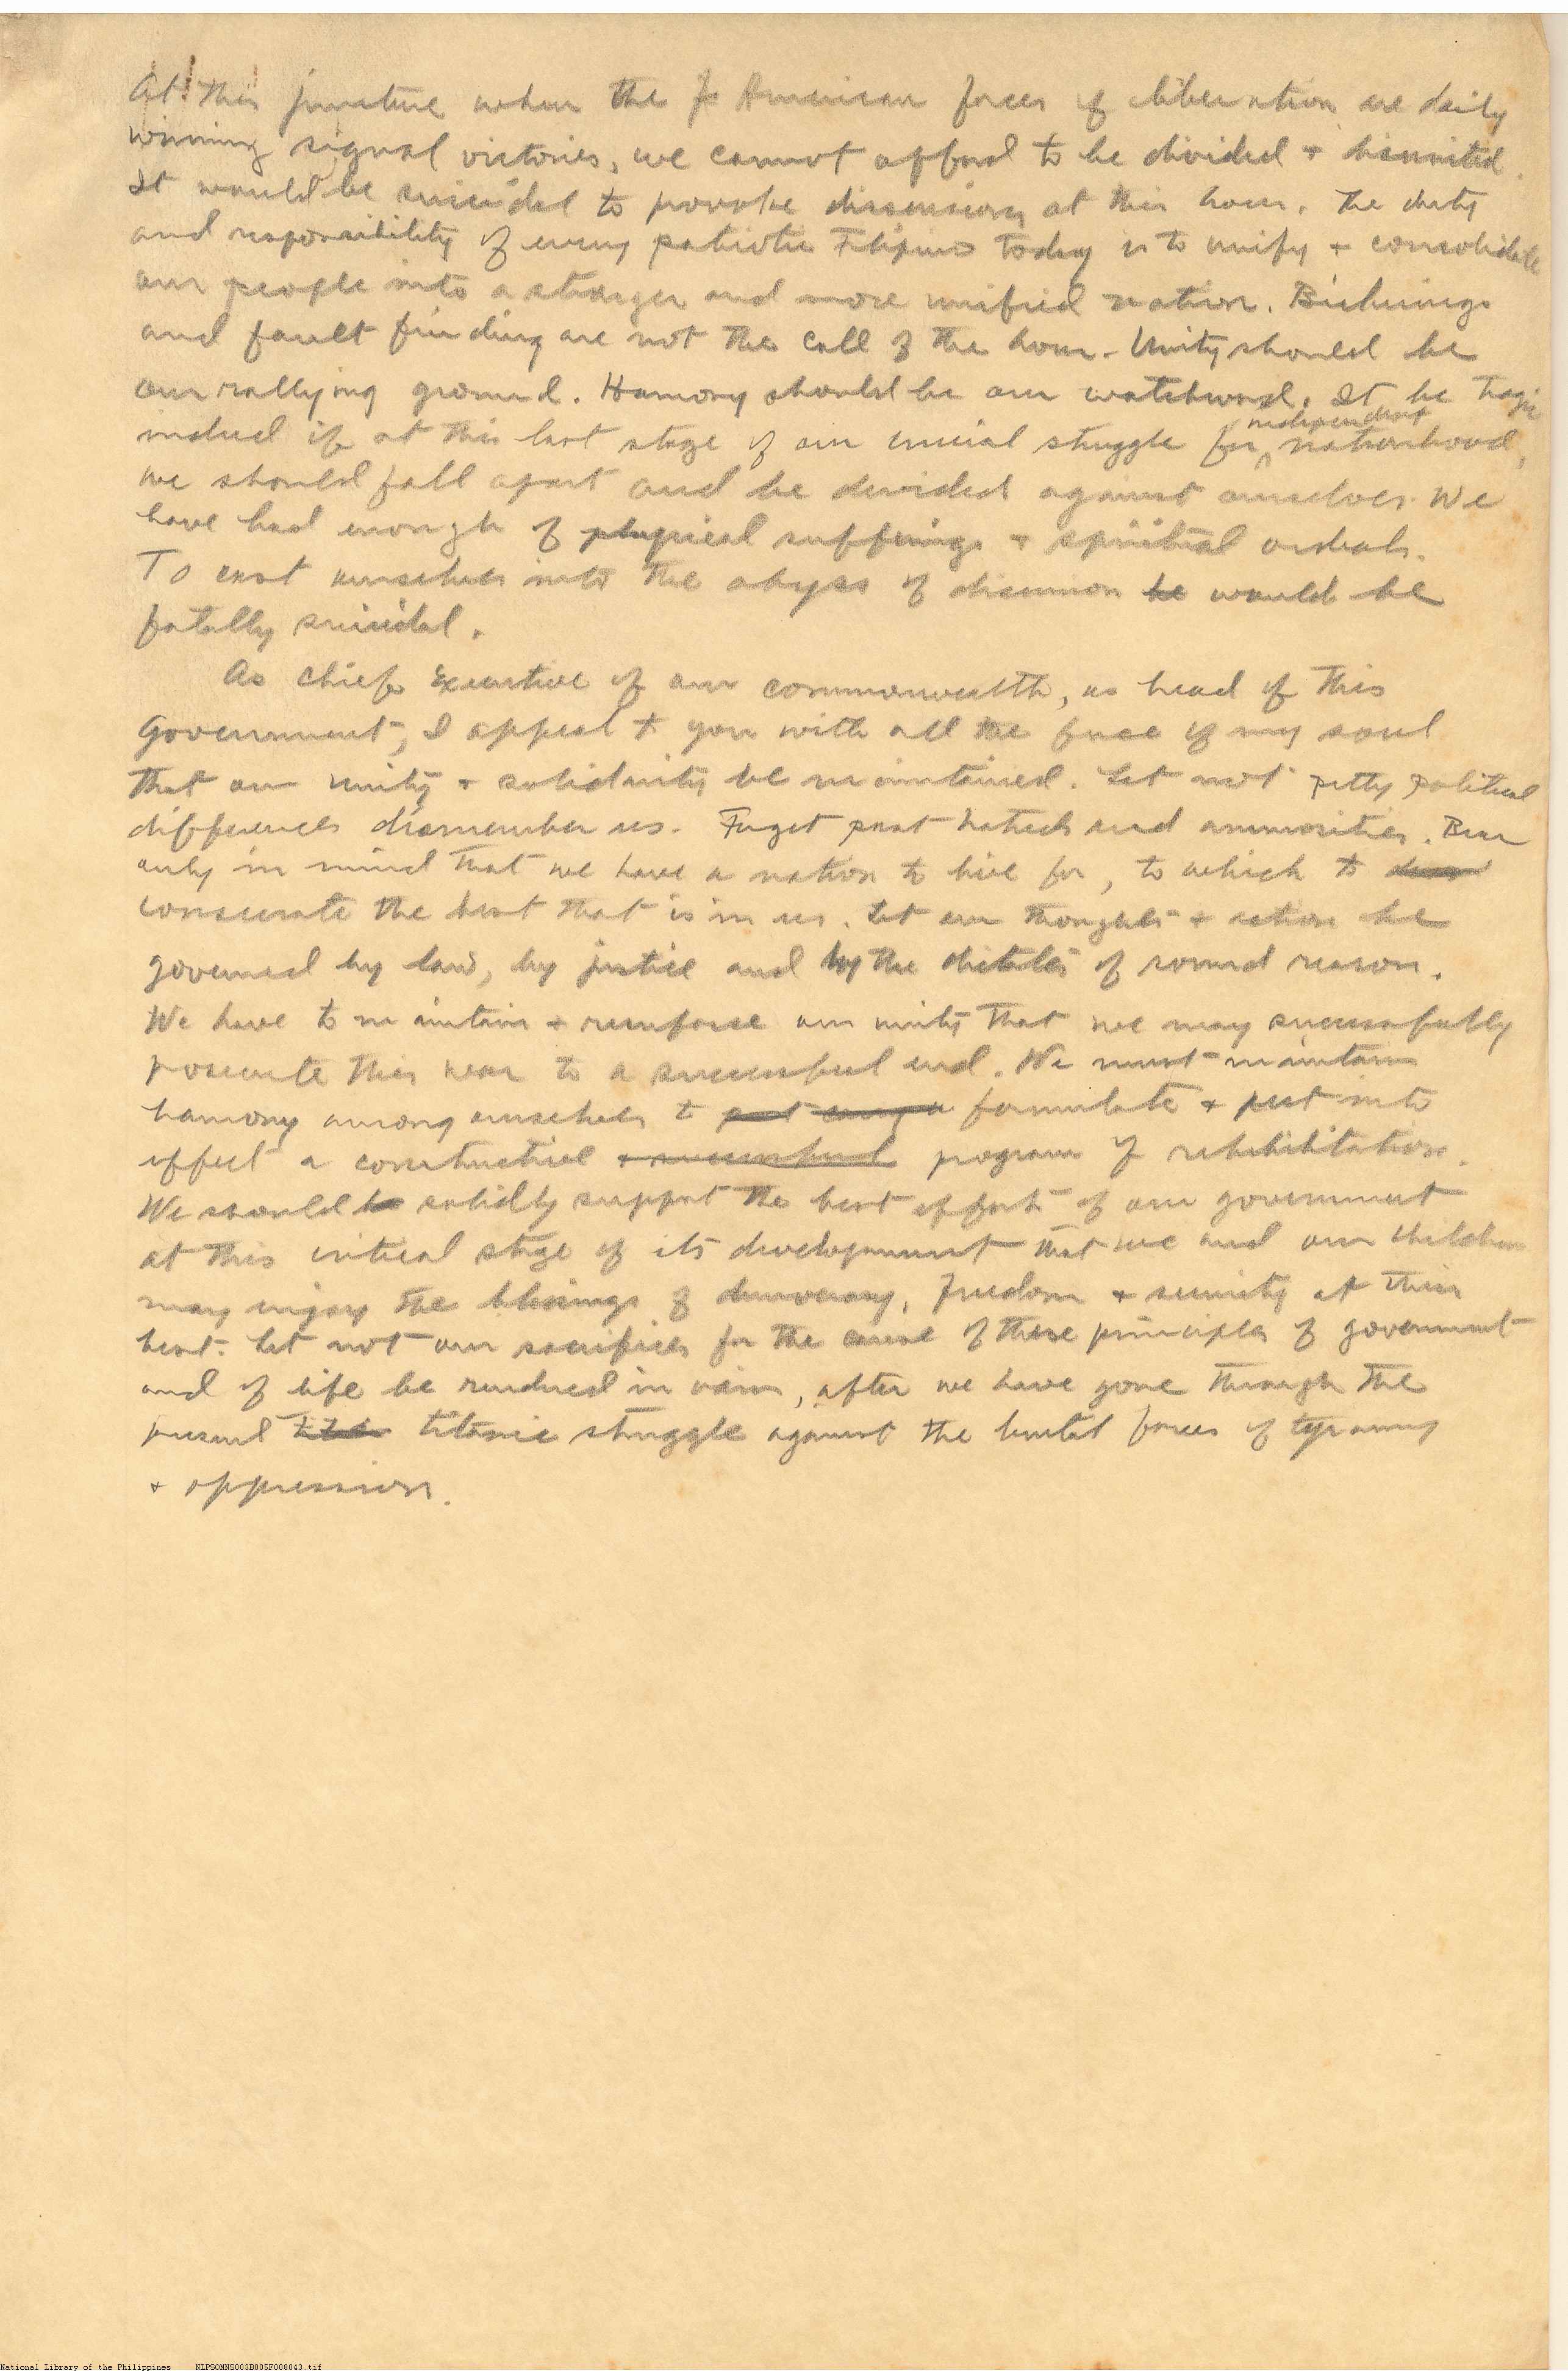 At this juncture when the American forces of liberation are daily
winning signal victories, we cannot afford to be divided + disunited.
It would be suicidal to provoke dissensions at this hour. The duty
and responsibility of every patriotic Filipino today is to unify + consolidate
our people into a stronger and more unified nation. Bickerings
and fault finding are not the call of the hour. Unity should be
our rallying ground. Harmony should be our watchword. It be tragic
indeed if at this last stage of our crucial struggle for independent nationhood,
we should fall apart and be divided against ourselves. We
have had enough of physical sufferings + spiritual ordeals.
To cast ourselves into the abyss of disunion be would be
fatally suicidal.
As Chief Executive of our commonwealth, as head of this
Government, I appeal to you with all the force of my soul
that our unity + solidarity be maintained. Let not petty political
differences dismember us. Forget past hatreds and animosities. Bear
only in mind that we have a nation to live for, to which to
consecrate the best that is in us. Let our thoughts + actions be
governed by law, by justice and by the dictates of sound reason.
We have to maintain + reinforce our unity that we may successfully
prosecute this war to a successful end. We must maintain
harmony among ourselves to put formulate + put into
effect a constructive + successful program of rehabilitation.
We should be solidly support the best efforts of our government
at this critical stage of its development that we and our children
may enjoy the blessings of democracy, freedom + security at their
best. Let not our sacrifices for the cause of these principles of government
and of life be rendered in vain, after we have gone through the
present titanic struggle against the brutal forces of tyranny
+ oppression.
National Library of the Philippines NLPSOMNS003B005F008043.tif